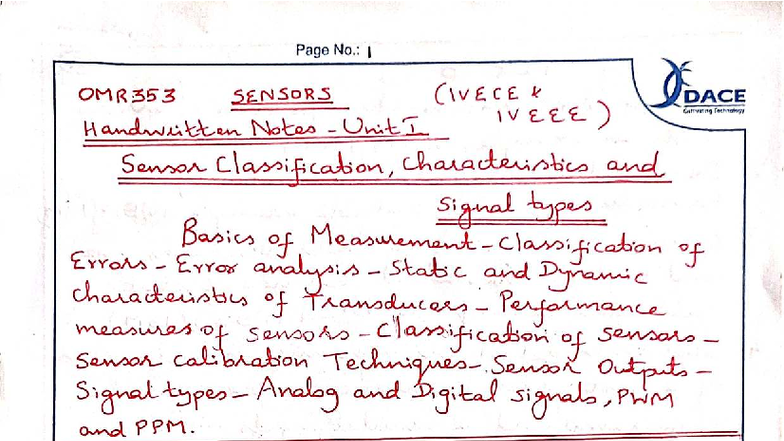 Page No.: 1
DACE
Cultivating Technology
OMR353 SENSORS (IV ECE &
IV EEE)
Handwritten Notes - Unit I
Sensor Classification, Characteristics and
Signal types
Basics of Measurement - Classification of
Errors - Error analysis - Static and Dynamic
characteristics of Transducers - Performance
measures of sensors - Classification of sensors -
Sensor calibration Techniques - Sensor Outputs -
Signal types - Analog and Digital signals, PWM
and PPM.